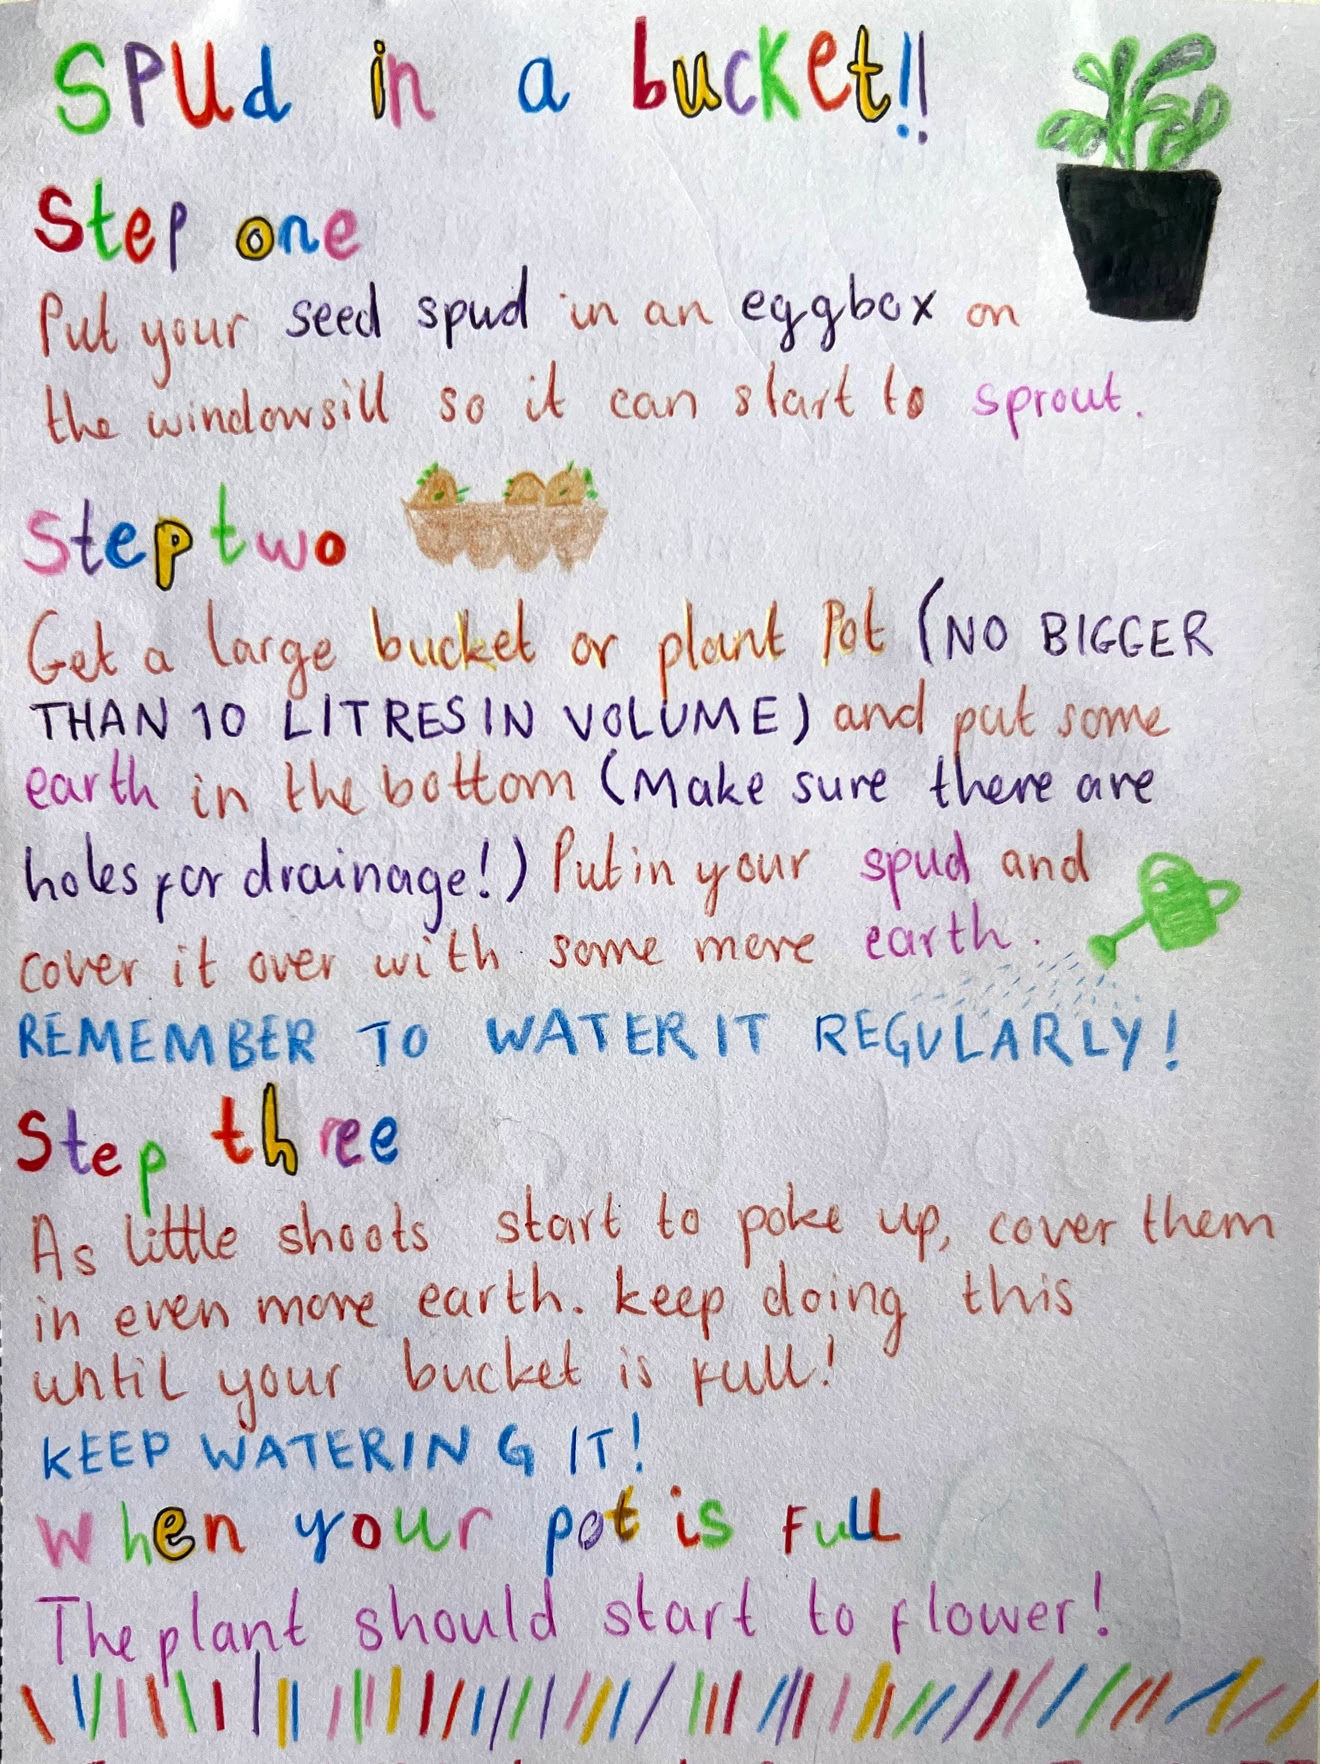 SPUd in a bucket!!
Step one
Put your seed spud in an eggbox on
the windowsill so it can start to sprout.
Step two
Get a large bucket or plant Pot (NO BIGGER
THAN 10 LITRES IN VOLUME) and put some
earth in the bottom (Make sure there are
holes for drainage!) Put in your spud and
cover it over with some more earth.
REMEMBER TO WATER IT REGULARLY!
Step three
As little shoots start to poke up, cover them
in even more earth. keep doing this
until your bucket is full!
KEEP WATERING IT!
When your pot is Full
The plant should start to flower!